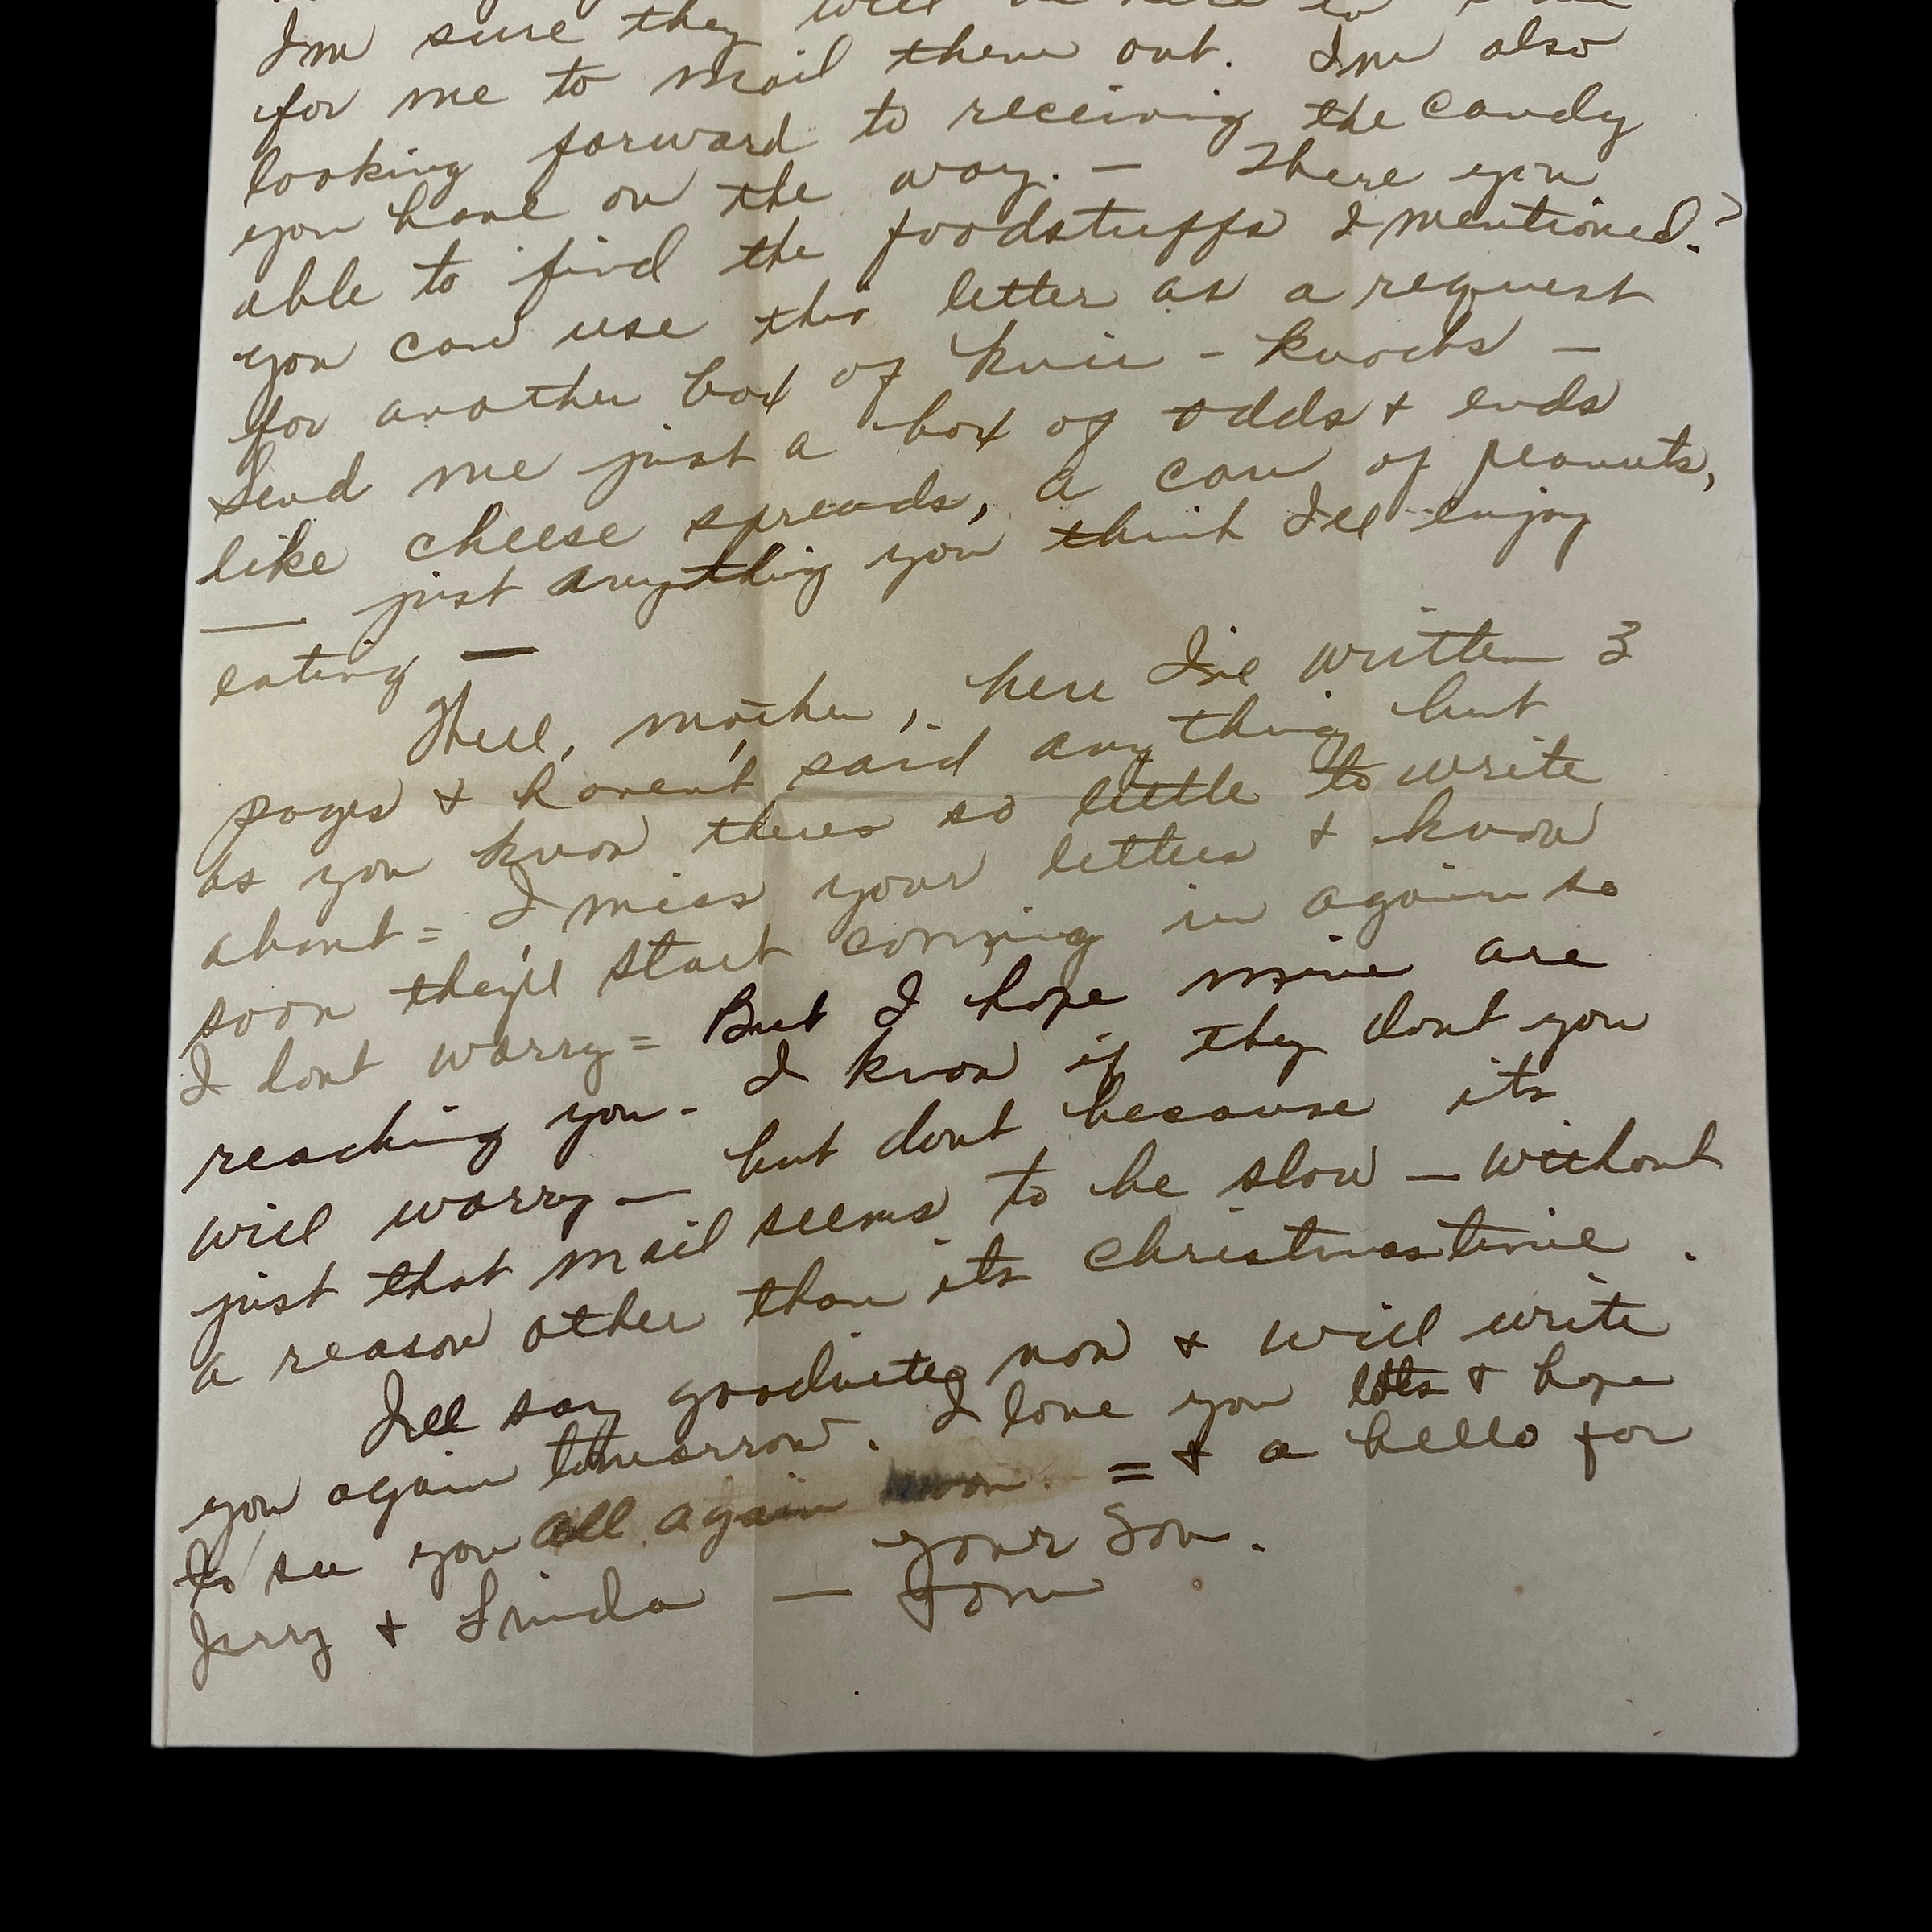 Im sure they will be here in time
for me to mail them out. Im also
looking forward to receiving the candy
you have on the way. — Were you
able to find the foodstuffs I mentioned?
you can use this letter as a request
for another box of knic - knacks —
Send me just a box of odds & ends
like cheese spreads, a can of peanuts,
— just anything you think Ill enjoy
eating —
Well, mother, here Ive written 3
pages & haven't said anything but
as you know theres so little to write
about = I miss your letters & know
soon they'll start coming in again so
I dont worry = But I hope mine are
reaching you - I know if they dont you
will worry — but dont because its
just that mail seems to be slow — without
a reason other than its christmastime.
Ill say goodnite now & will write
you again tomorrow. I love you lots & hope
to see you all again soon. = & a hello for
Jerry & Linda — your Son.
Tom